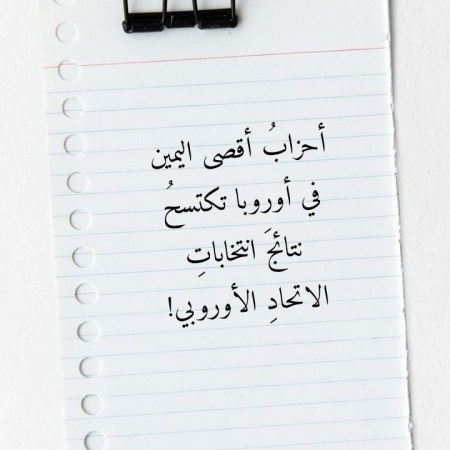 أحزابُ أقصى اليمين
في أوروبا تكتسحُ
نتائجَ انتخاباتِ
الاتحادِ الأوروبي!